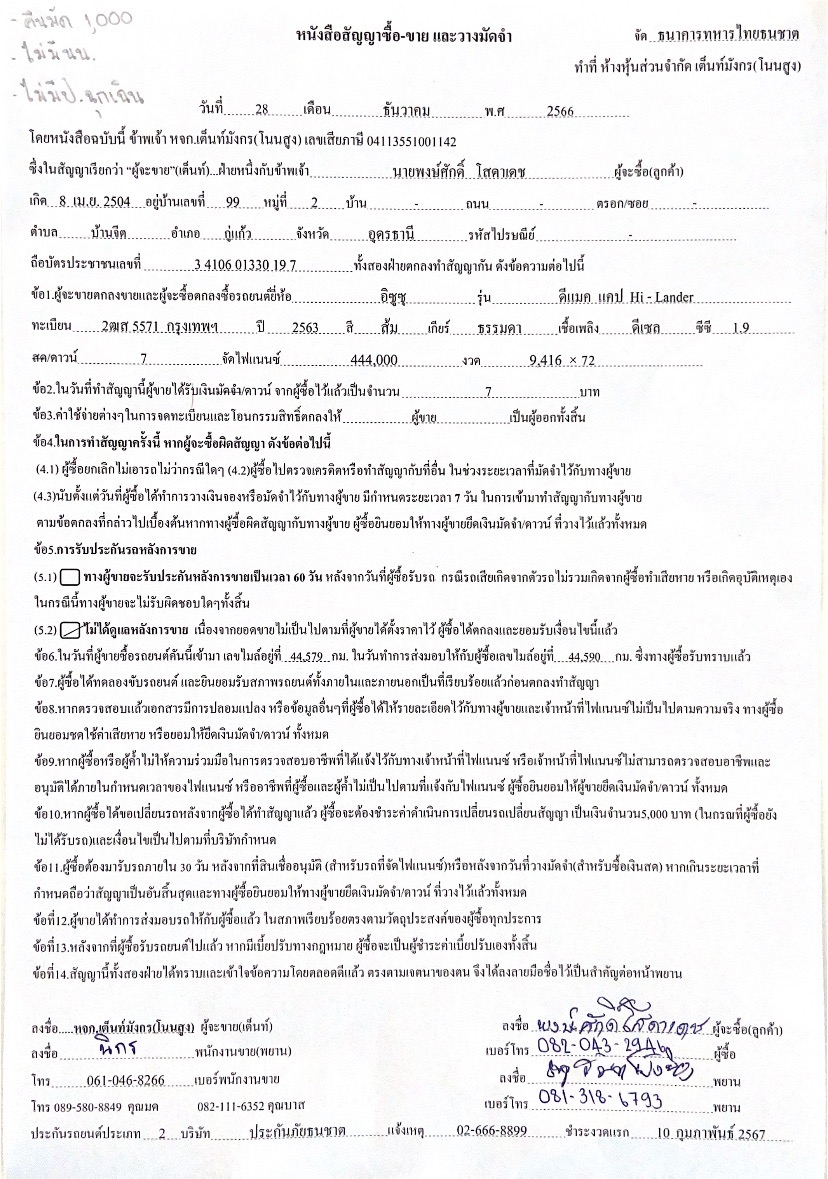 - คืนมัด 1,000
- ไม่มี ขน.
- ไม่มีป. ฉุกเฉิน
หนังสือสัญญาซื้อ-ขาย และวางมัดจำ
จัด ธนาคารทหารไทยธนชาต
ทำที่ ห้างหุ้นส่วนจำกัด เต็นท์มังกร(โนนสูง)
วันที่ 28 เดือน ธันวาคม พ.ศ 2566
โดยหนังสือฉบับนี้ ข้าพเจ้า หจก.เต็นท์มังกร(โนนสูง) เลขเสียภาษี 04113551001142
ซึ่งในสัญญาเรียกว่า "ผู้จะขาย"(เต็นท์)...ฝ่ายหนึ่งกับข้าพเจ้า นายพงษ์ศักดิ์ โสดาเดช ผู้จะซื้อ(ลูกค้า)
เกิด 8 เม.ย. 2504 อยู่บ้านเลขที่ 99 หมู่ที่ 2 บ้าน - ถนน - ตรอก/ซอย -
ตำบล บ้านจีต อำเภอ กู่แก้ว จังหวัด อุดรธานี รหัสไปรษณีย์ -
ถือบัตรประชาชนเลขที่ 3 4106 01330 19 7 ทั้งสองฝ่ายตกลงทำสัญญากัน ดังข้อความต่อไปนี้
ข้อ1.ผู้จะขายตกลงขายและผู้จะซื้อตกลงซื้อรถยนต์ยี่ห้อ อีซูซุ รุ่น ดีแมค แคป Hi - Lander
ทะเบียน 2ฒส 5571 กรุงเทพฯ ปี 2563 สี ส้ม เกียร์ ธรรมดา เชื้อเพลิง ดีเซล ซีซี 1.9
สด/ดาวน์ 7 จัดไฟแนนซ์ 444,000 งวด 9,416 × 72
ข้อ2.ในวันที่ทำสัญญานี้ผู้ขายได้รับเงินมัดจำ/ดาวน์ จากผู้ซื้อไว้แล้วเป็นจำนวน 7 บาท
ข้อ3.ค่าใช้จ่ายต่างๆในการจดทะเบียนและโอนกรรมสิทธิ์ตกลงให้ ผู้ขาย เป็นผู้ออกทั้งสิ้น
ข้อ4.ในการทำสัญญาครั้งนี้ หากผู้จะซื้อผิดสัญญา ดังข้อต่อไปนี้
(4.1) ผู้ซื้อยกเลิกไม่เอารถไม่ว่ากรณีใดๆ (4.2)ผู้ซื้อไปตรวจเครดิตหรือทำสัญญากับที่อื่น ในช่วงระยะเวลาที่มัดจำไว้กับทางผู้ขาย
(4.3)นับตั้งแต่วันที่ผู้ซื้อได้ทำการวางเงินจองหรือมัดจำไว้กับทางผู้ขาย มีกำหนดระยะเวลา 7 วัน ในการเข้ามาทำสัญญากับทางผู้ขาย
ตามข้อตกลงที่กล่าวไปเบื้องต้นหากทางผู้ซื้อผิดสัญญากับทางผู้ขาย ผู้ซื้อยินยอมให้ทางผู้ขายยึดเงินมัดจำ/ดาวน์ ที่วางไว้แล้วทั้งหมด
ข้อ5.การรับประกันรถหลังการขาย
(5.1) ทางผู้ขายจะรับประกันหลังการขายเป็นเวลา 60 วัน หลังจากวันที่ผู้ซื้อรับรถ กรณีรถเสียเกิดจากตัวรถไม่รวมเกิดจากผู้ซื้อทำเสียหาย หรือเกิดอุบัติเหตุเอง
ในกรณีนี้ทางผู้ขายจะไม่รับผิดชอบใดๆทั้งสิ้น
(5.2) ไม่ได้ดูแลหลังการขาย เนื่องจากยอดขายไม่เป็นไปตามที่ผู้ขายได้ตั้งราคาไว้ ผู้ซื้อได้ตกลงและยอมรับเงื่อนไขนี้แล้ว
ข้อ6.ในวันที่ผู้ขายซื้อรถยนต์คันนี้เข้ามา เลขไมล์อยู่ที่ 44,579 กม. ในวันทำการส่งมอบให้กับผู้ซื้อเลขไมล์อยู่ที่ 44,590 กม. ซึ่งทางผู้ซื้อรับทราบแล้ว
ข้อ7.ผู้ซื้อได้ทดลองขับรถยนต์ และยินยอมรับสภาพรถยนต์ทั้งภายในและภายนอกเป็นที่เรียบร้อยแล้วก่อนตกลงทำสัญญา
ข้อ8.หากตรวจสอบแล้วเอกสารมีการปลอมแปลง หรือข้อมูลอื่นๆที่ผู้ซื้อได้ให้รายละเอียดไว้กับทางผู้ขายและเจ้าหน้าที่ไฟแนนซ์ไม่เป็นไปตามความจริง ทางผู้ซื้อ
ยินยอมชดใช้ค่าเสียหาย หรือยอมให้ยึดเงินมัดจำ/ดาวน์ ทั้งหมด
ข้อ9.หากผู้ซื้อหรือผู้ค้ำไม่ให้ความร่วมมือในการตรวจสอบอาชีพที่ได้แจ้งไว้กับทางเจ้าหน้าที่ไฟแนนซ์ หรือเจ้าหน้าที่ไฟแนนซ์ไม่สามารถตรวจสอบอาชีพและ
อนุมัติได้ภายในกำหนดเวลาของไฟแนนซ์ หรืออาชีพที่ผู้ซื้อและผู้ค้ำไม่เป็นไปตามที่แจ้งกับไฟแนนซ์ ผู้ซื้อยินยอมให้ผู้ขายยึดเงินมัดจำ/ดาวน์ ทั้งหมด
ข้อ10.หากผู้ซื้อได้ขอเปลี่ยนรถหลังจากผู้ซื้อได้ทำสัญญาแล้ว ผู้ซื้อจะต้องชำระค่าดำเนินการเปลี่ยนรถเปลี่ยนสัญญา เป็นเงินจำนวน5,000 บาท (ในกรณที่ผู้ซื้อยัง
ไม่ได้รับรถ)และเงื่อนไขเป็นไปตามที่บริษัทกำหนด
ข้อ11.ผู้ซื้อต้องมารับรถภายใน 30 วัน หลังจากที่สินเชื่ออนุมัติ (สำหรับรถที่จัดไฟแนนซ์)หรือหลังจากวันที่วางมัดจำ(สำหรับซื้อเงินสด) หากเกินระยะเวลาที่
กำหนดถือว่าสัญญาเป็นอันสิ้นสุดและทางผู้ซื้อยินยอมให้ทางผู้ขายยึดเงินมัดจำ/ดาวน์ ที่วางไว้แล้วทั้งหมด
ข้อที่12.ผู้ขายได้ทำการส่งมอบรถให้กับผู้ซื้อแล้ว ในสภาพเรียบร้อยตรงตามวัตถุประสงค์ของผู้ซื้อทุกประการ
ข้อที่13.หลังจากที่ผู้ซื้อรับรถยนต์ไปแล้ว หากมีเบี้ยปรับทางกฎหมาย ผู้ซื้อจะเป็นผู้ชำระค่าเบี้ยปรับเองทั้งสิ้น
ข้อที่14.สัญญานี้ทั้งสองฝ่ายได้ทราบและเข้าใจข้อความโดยตลอดดีแล้ว ตรงตามเจตนาของตน จึงได้ลงลายมือชื่อไว้เป็นสำคัญต่อหน้าพยาน
ลงชื่อ.....หจก.เต็นท์มังกร(โนนสูง) ผู้จะขาย(เต็นท์)
ลงชื่อ นิกร พนักงานขาย(พยาน)
โทร 061-046-8266 เบอร์พนักงานขาย
โทร 089-580-8849 คุณมด 082-111-6352 คุณบาส
ลงชื่อ พงษ์ศักดิ์ โสดาเดช ผู้จะซื้อ(ลูกค้า)
เบอร์โทร 082-043-2946 ผู้ซื้อ
ลงชื่อ พยาน
เบอร์โทร 081-318-6793 พยาน
ประกันรถยนต์ประเภท 2 บริษัท ประกันภัยธนชาต แจ้งเหตุ 02-666-8899 ชำระงวดแรก 10 กุมภาพันธ์ 2567